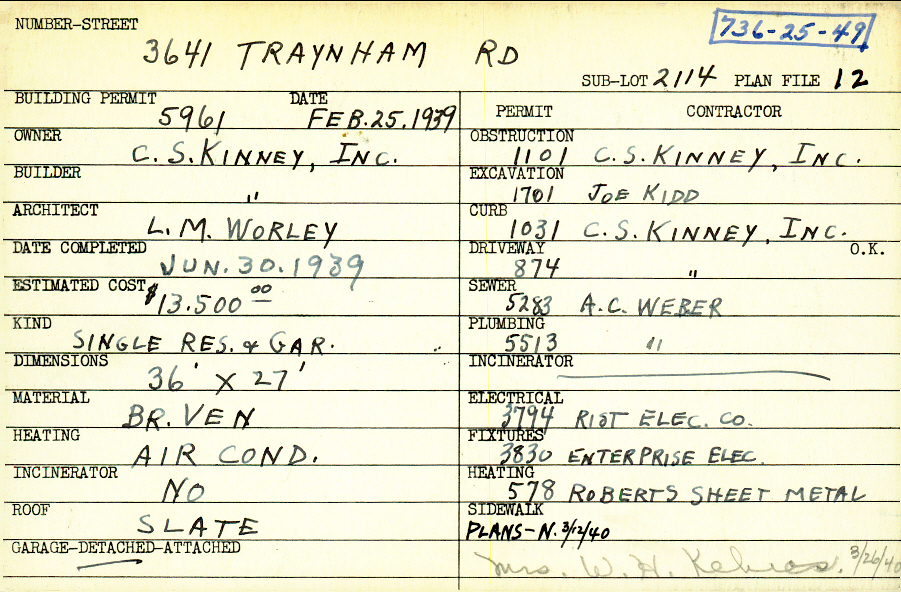 NUMBER-STREET
736-25-49
3641 TRAYNHAM RD
SUB-LOT 2114 PLAN FILE 12
BUILDING PERMIT DATE
5961 FEB.25.1939
OWNER
C.S.KINNEY, INC.
BUILDER
"
ARCHITECT
L.M. WORLEY
DATE COMPLETED
JUN.30.1939
ESTIMATED COST
$13.500 00
KIND
SINGLE RES. & GAR.
DIMENSIONS
36' X 27'
MATERIAL
BR. VEN
HEATING
AIR COND.
INCINERATOR
NO
ROOF
SLATE
GARAGE-DETACHED-ATTACHED
PERMIT CONTRACTOR
OBSTRUCTION
1101 C.S.KINNEY, INC.
EXCAVATION
1701 JOE KIDD
CURB
1031 C.S.KINNEY, INC.
DRIVEWAY O.K.
874 "
SEWER
5283 A.C. WEBER
PLUMBING
5513 "
INCINERATOR
ELECTRICAL
3794 RIST ELEC. CO.
FIXTURES
3830 ENTERPRISE ELEC.
HEATING
578 ROBERTS SHEET METAL
SIDEWALK
PLANS-N. 3/12/40
Mrs. W. H. 3/26/40